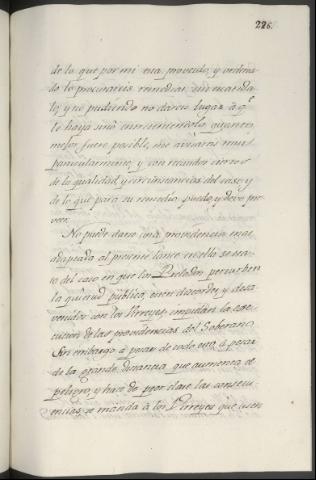 226.
de lo que por mi esta proveido, y ordena
do lo procurareis remediar, sin escanda
lo, y no pudiendo no dareis lugar à q.e
le haya sino encaminandolo,
mejor fuere posible, me avisareis muy
particularmente, y con recaudos ciertos
de la qualidad, y circunstancias del caso, y
de lo que para su remedio, puedo, y devo pro
veer.
No puede darse una providencia mas
adaptada al presente lance en ella se tra
ta del caso en que los Prelados perturben
la quietud publica, esten discordes, y desa
venidos con los Virreyes impidan la exe
cucion de las providencias del Soberano.
Sin embargo à pesar de todo esto, à pesar
de la grande distancia que aumenta el
peligro, y hace de peor clase las consecu
encias, se manda à los Virreyes que usen